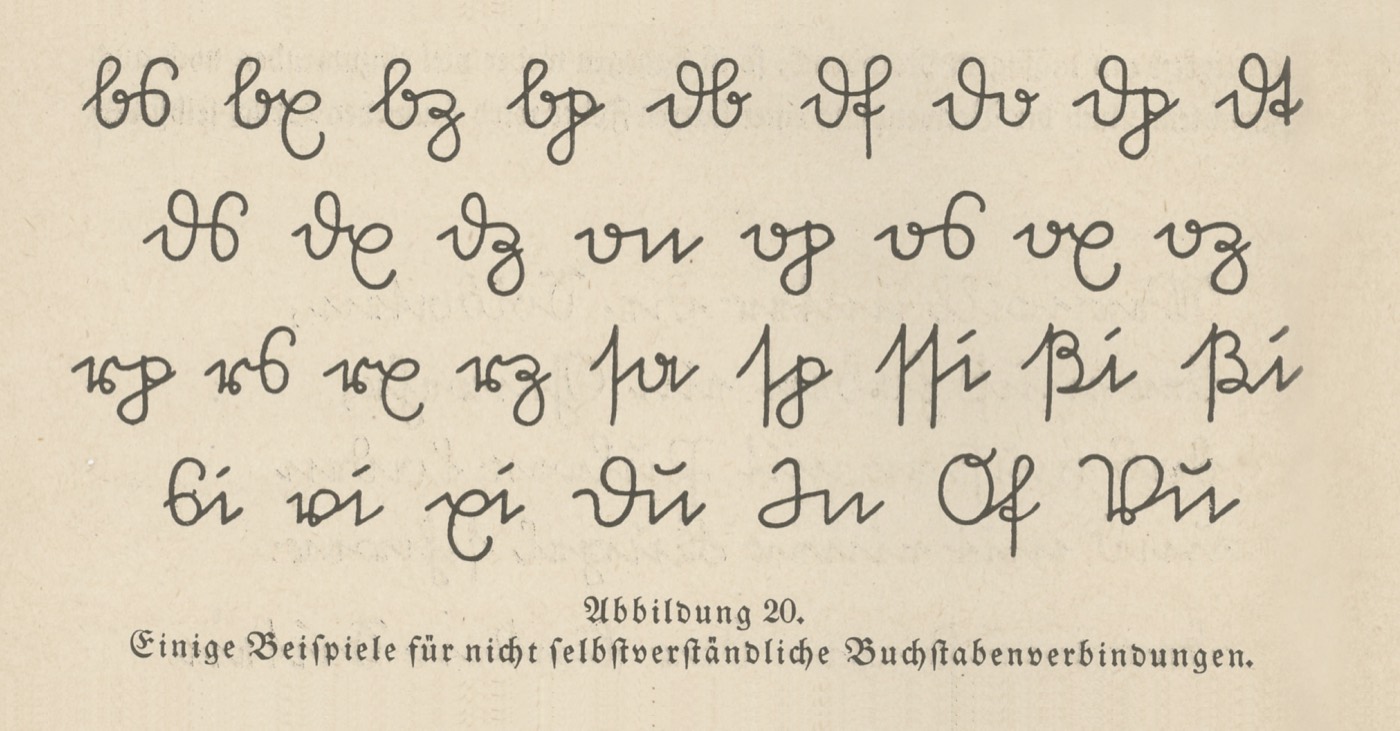 bs bx bz bp db df do dp dt
ds dx dz on op os ox oz
rp rs rx rz ſa ſp ſſi ßi ßi
si vi xi Du In Of Vu
Abbildung 20.
Einige Beiſpiele für nicht ſelbſtverſtändliche Buchſtabenverbindungen.